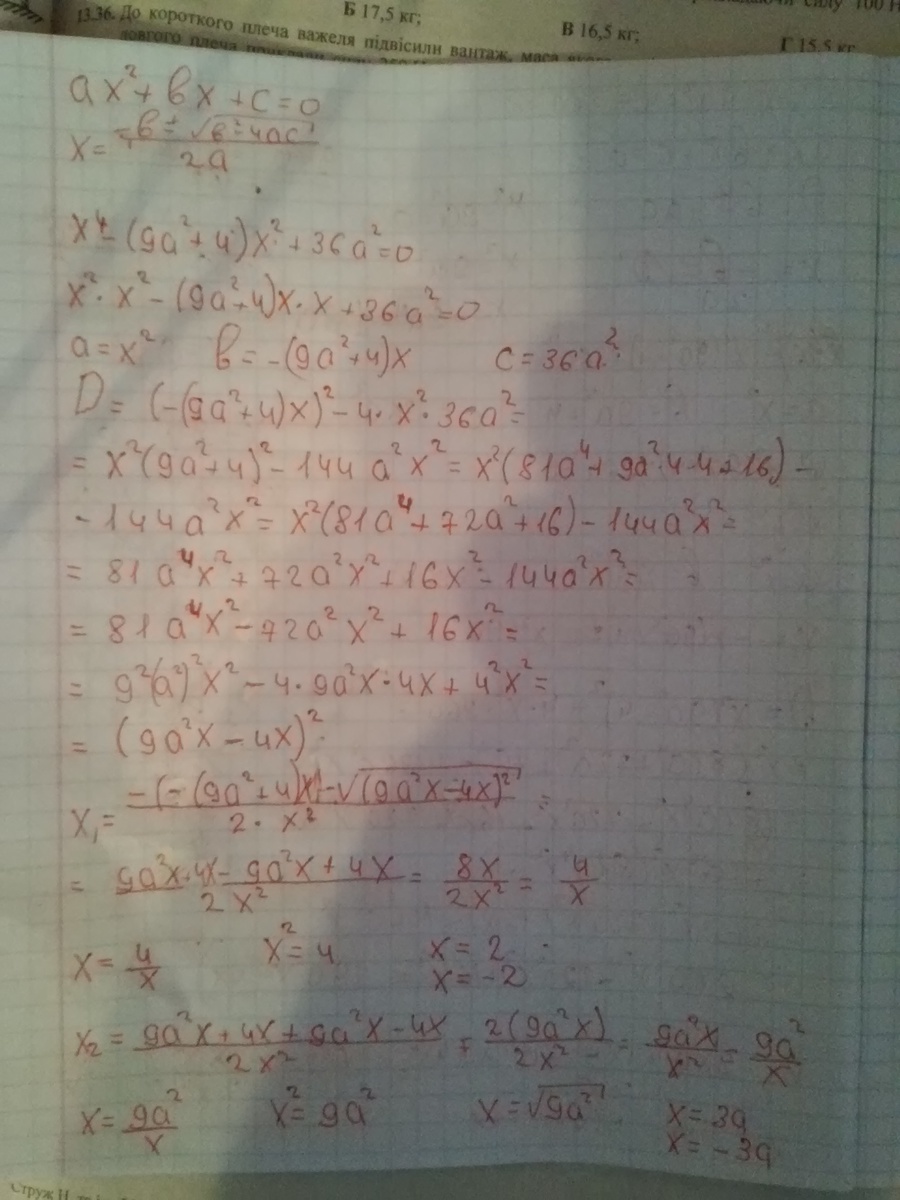 Б 17,5 кг;
13.36. До короткого плеча важеля підвісили вантаж, маса
В 16,5 кг;
силу 100 Н
Г 15,5 кг
довгого плеча
ax² + bx + c = 0
x = (-b ± √(b² - 4ac)) / 2a
x⁴ - (9a² + 4)x² + 36a² = 0
x² · x² - (9a² + 4)x · x + 36a² = 0
a = x² b = -(9a² + 4)x c = 36a²
D = (-(9a² + 4)x)² - 4 · x² · 36a² =
= x²(9a² + 4)² - 144a²x² = x²(81a⁴ + 9a² · 4 · 4 + 16) -
- 144a²x² = x²(81a⁴ + 72a² + 16) - 144a²x² =
= 81a⁴x² + 72a²x² + 16x² - 144a²x² =
= 81a⁴x² - 72a²x² + 16x² =
= 9²(a²)²x² - 4 · 9a²x · 4x + 4²x² =
= (9a²x - 4x)²
x₁ = (-(-(9a² + 4)x) - √((9a²x - 4x)²)) / (2 · x²) =
= (9a²x + 4x - 9a²x + 4x) / 2x² = 8x / 2x² = 4 / x
x = 4 / x x² = 4 x = 2
x = -2
x₂ = (9a²x + 4x + 9a²x - 4x) / 2x² = 2(9a²x) / 2x² = 9a²x / x² = 9a² / x
x = 9a² / x x² = 9a² x = √(9a²) x = 3a
x = -3a